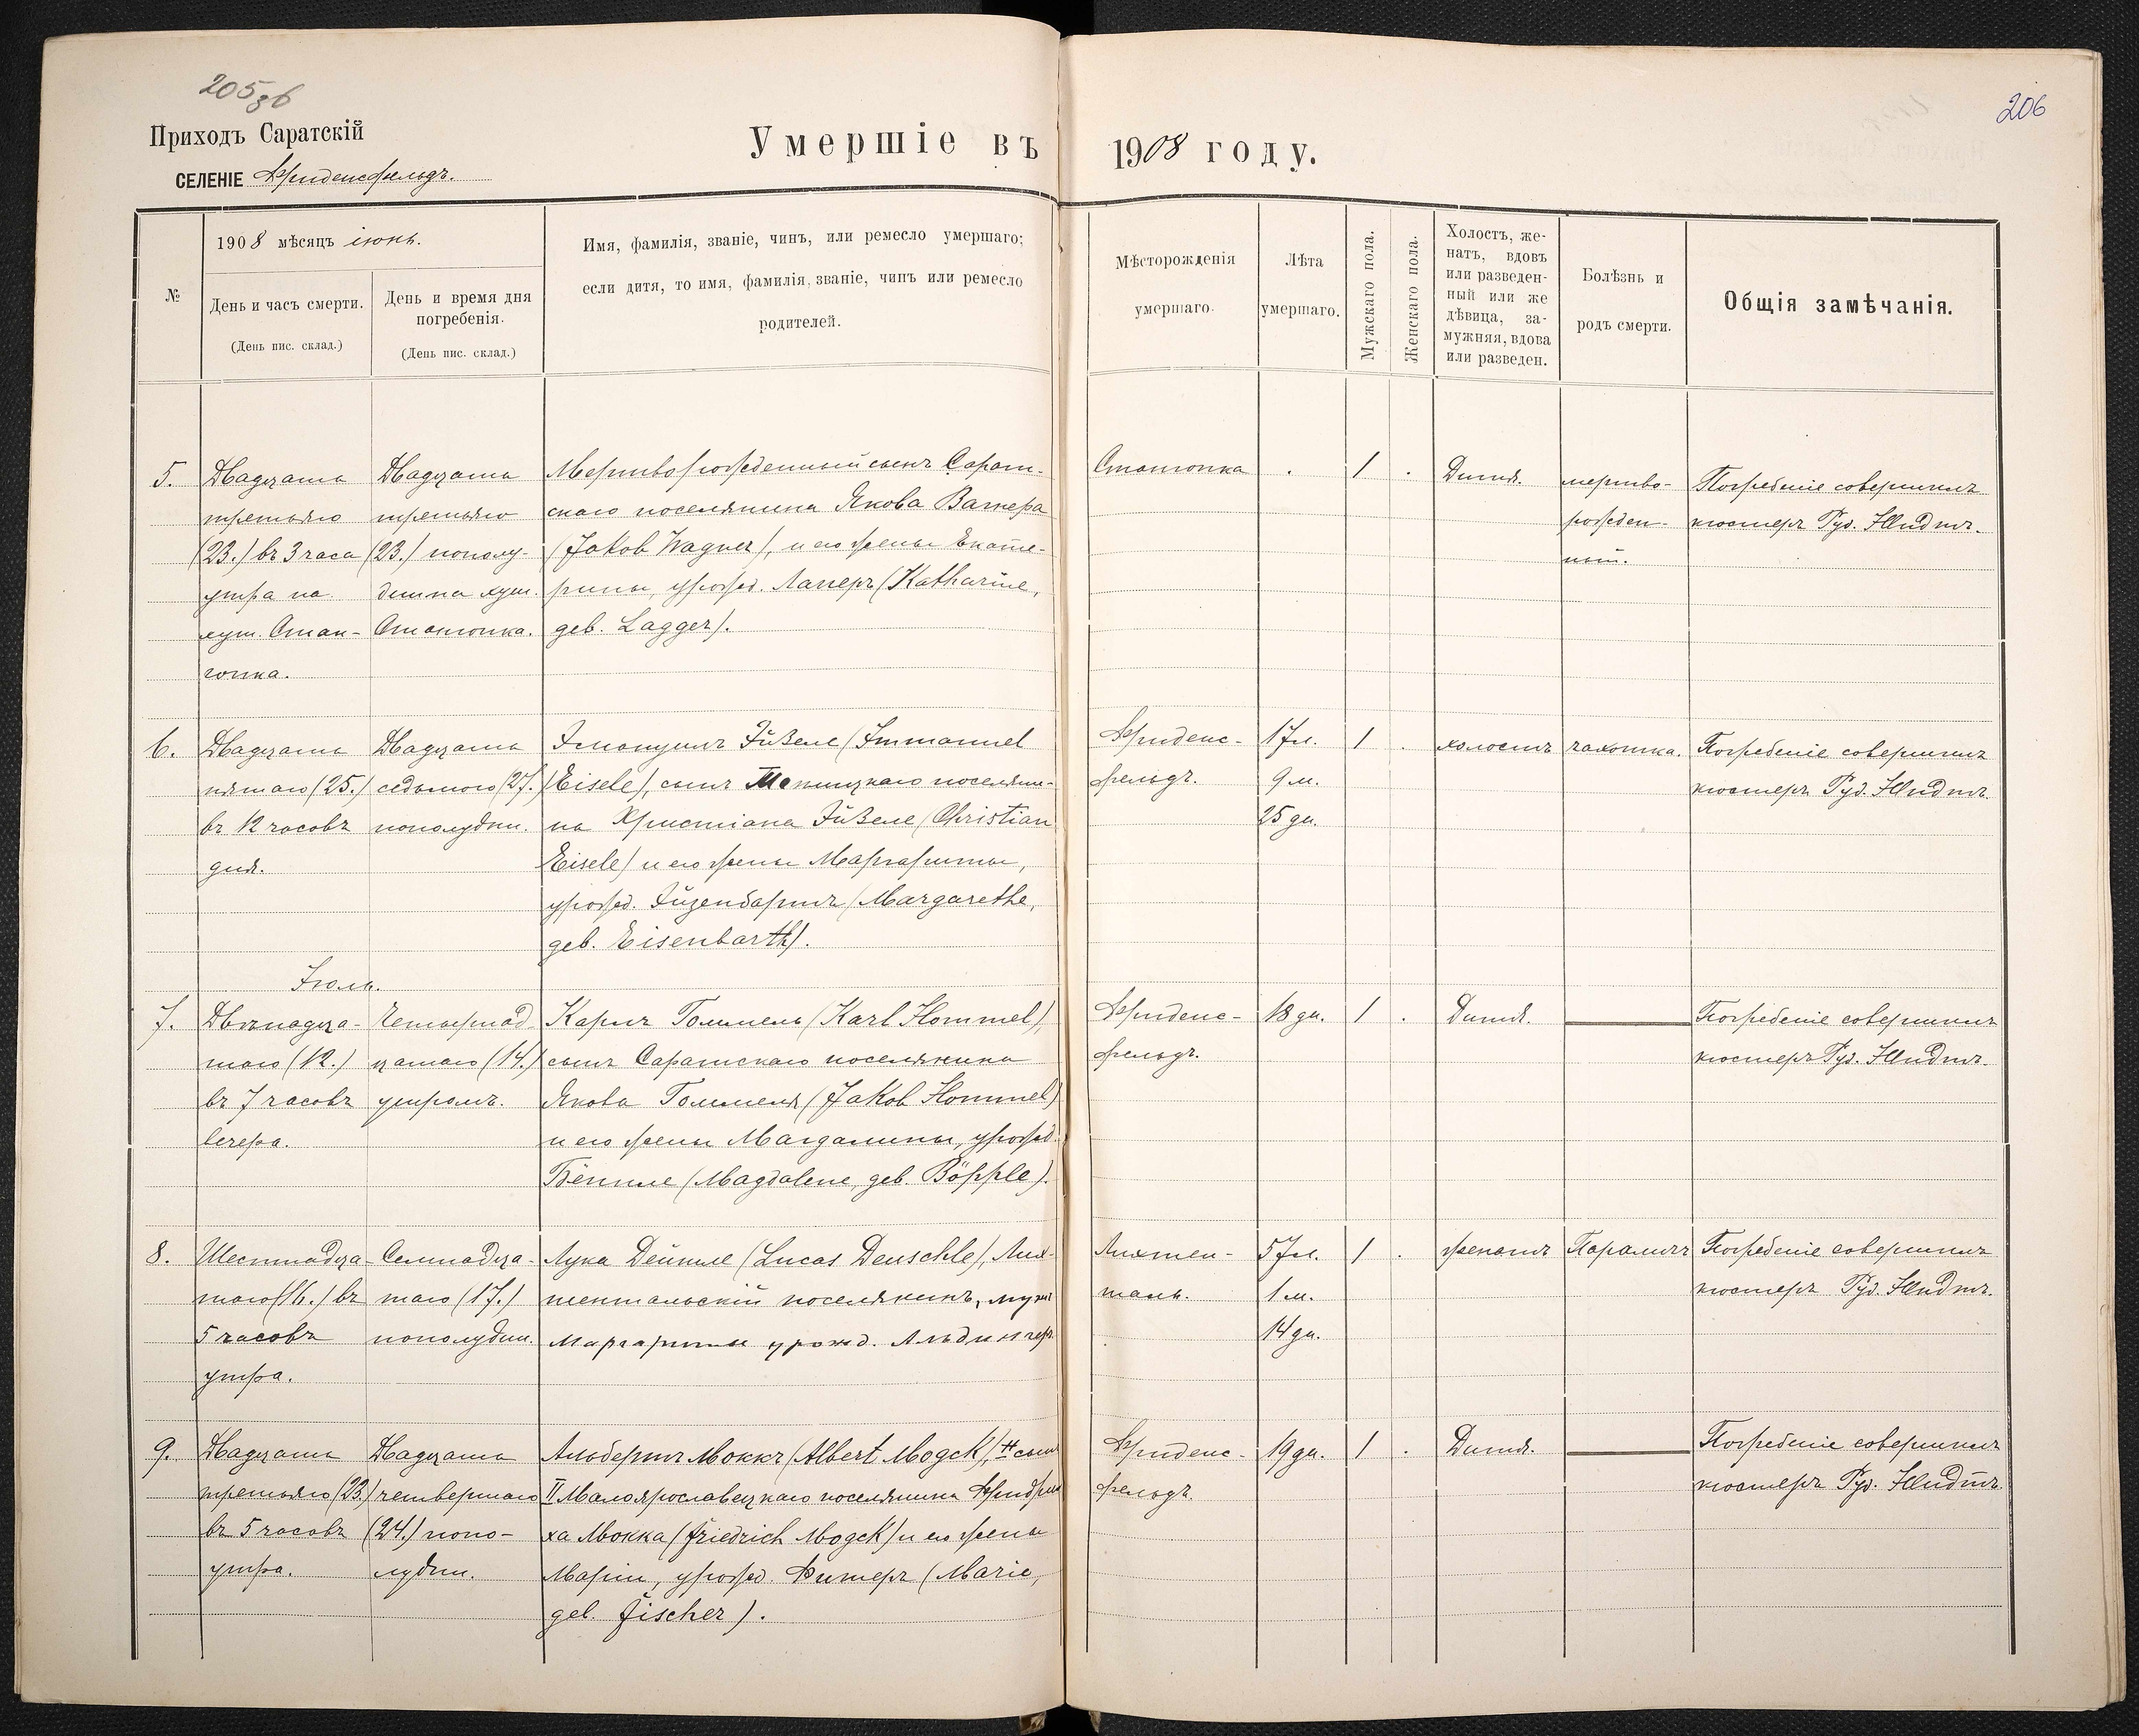 205 зв
206
Приходъ Саратскій
СЕЛЕНІЕ Фриденсфельдъ.
Умершіе въ 1908 году.
№
1908 мѣсяцъ іюнь.
День и часъ смерти.
(День пис. склад.)
День и время дня
погребенія.
(День пис. склад.)
Имя, фамилія, званіе, чинъ, или ремесло умершаго;
если дитя, то имя, фамилія, званіе, чинъ или ремесло
родителей.
Мѣсторожденія
умершаго.
Лѣта
умершаго.
Мужскаго пола.
Женскаго пола.
Холостъ, же-
натъ, вдовъ
или разведен-
ный или же
дѣвица, за-
мужняя, вдова
или разведен.
Болѣзнь и
родъ смерти.
Общія замѣчанія.
5.
Двадцать
третьяго
(23.) въ 3 часа
утра на
хут.
Двадцать
третьяго
(23.) пополу-
дни на хут.
Мертворожденный сынъ Сарат-
скаго поселянина Якова Вагнера
(Jakob Wagner), и его жены Екате-
рины, урожд. Лаггеръ (Katharine,
geb. Lagger).
1 .
Дитя.
мертво-
рожден-
ный.
Погребеніе совершилъ
кюстеръ Руд. Шмидтъ.
6.
Двадцать
пятаго (25.)
въ 12 часовъ
дня.
Двадцать
седьмого (27.)
пополудни.
Эмануилъ Эйзеле (Immanuel
Eisele), сынъ поселяни-
на Христіана Эйзеле (Christian
Eisele) и его жены Маргариты,
урожд. Эйзенбартъ (Margarethe,
geb. Eisenbarth).
Фриденс-
фельдъ.
17 л.
9 м.
25 дн.
1 .
холостъ
чахотка.
Погребеніе совершилъ
кюстеръ Руд. Шмидтъ.
Іюль.
7.
Двѣнадца-
таго (12.)
въ 7 часовъ
вечера.
Четырнад-
цатаго (14.)
утромъ.
Карлъ Гоммель (Karl Hommel),
сынъ Саратскаго поселянина
Якова Гоммеля (Jakob Hommel)
и его жены Магдалины, урожд.
Бёппле (Magdalene, geb. Böpple).
Фриденс-
фельдъ.
18 дн.
1 .
Дитя.
Погребеніе совершилъ
кюстеръ Руд. Шмидтъ.
8.
Шестнадца-
таго (16.) въ
5 часовъ
утра.
Семнадца-
таго (17.)
пополудни.
Лука Дейшле (Lucas Deuschle), Лих-
тентальскій поселянинъ, мужъ
Маргариты урожд. Альдингеръ
Лихтен-
таль.
57 л.
1 м.
14 дн.
1 .
женатъ
Параличъ
Погребеніе совершилъ
кюстеръ Руд. Шмидтъ.
9.
Двадцать
третьяго (23.)
въ 5 часовъ
утра.
Двадцать
четвертаго
(24.) попо-
лудни.
Альбертъ Моккъ (Albert Mogck), сынъ
II Малоярославецкаго поселянина Фридри-
ха Мокка (Friedrich Mogck) и его жены
Маріи, урожд. Фишеръ (Marie,
geb. Fischer).
Фриденс-
фельдъ.
19 дн.
1 .
Дитя.
Погребеніе совершилъ
кюстеръ Руд. Шмидтъ.